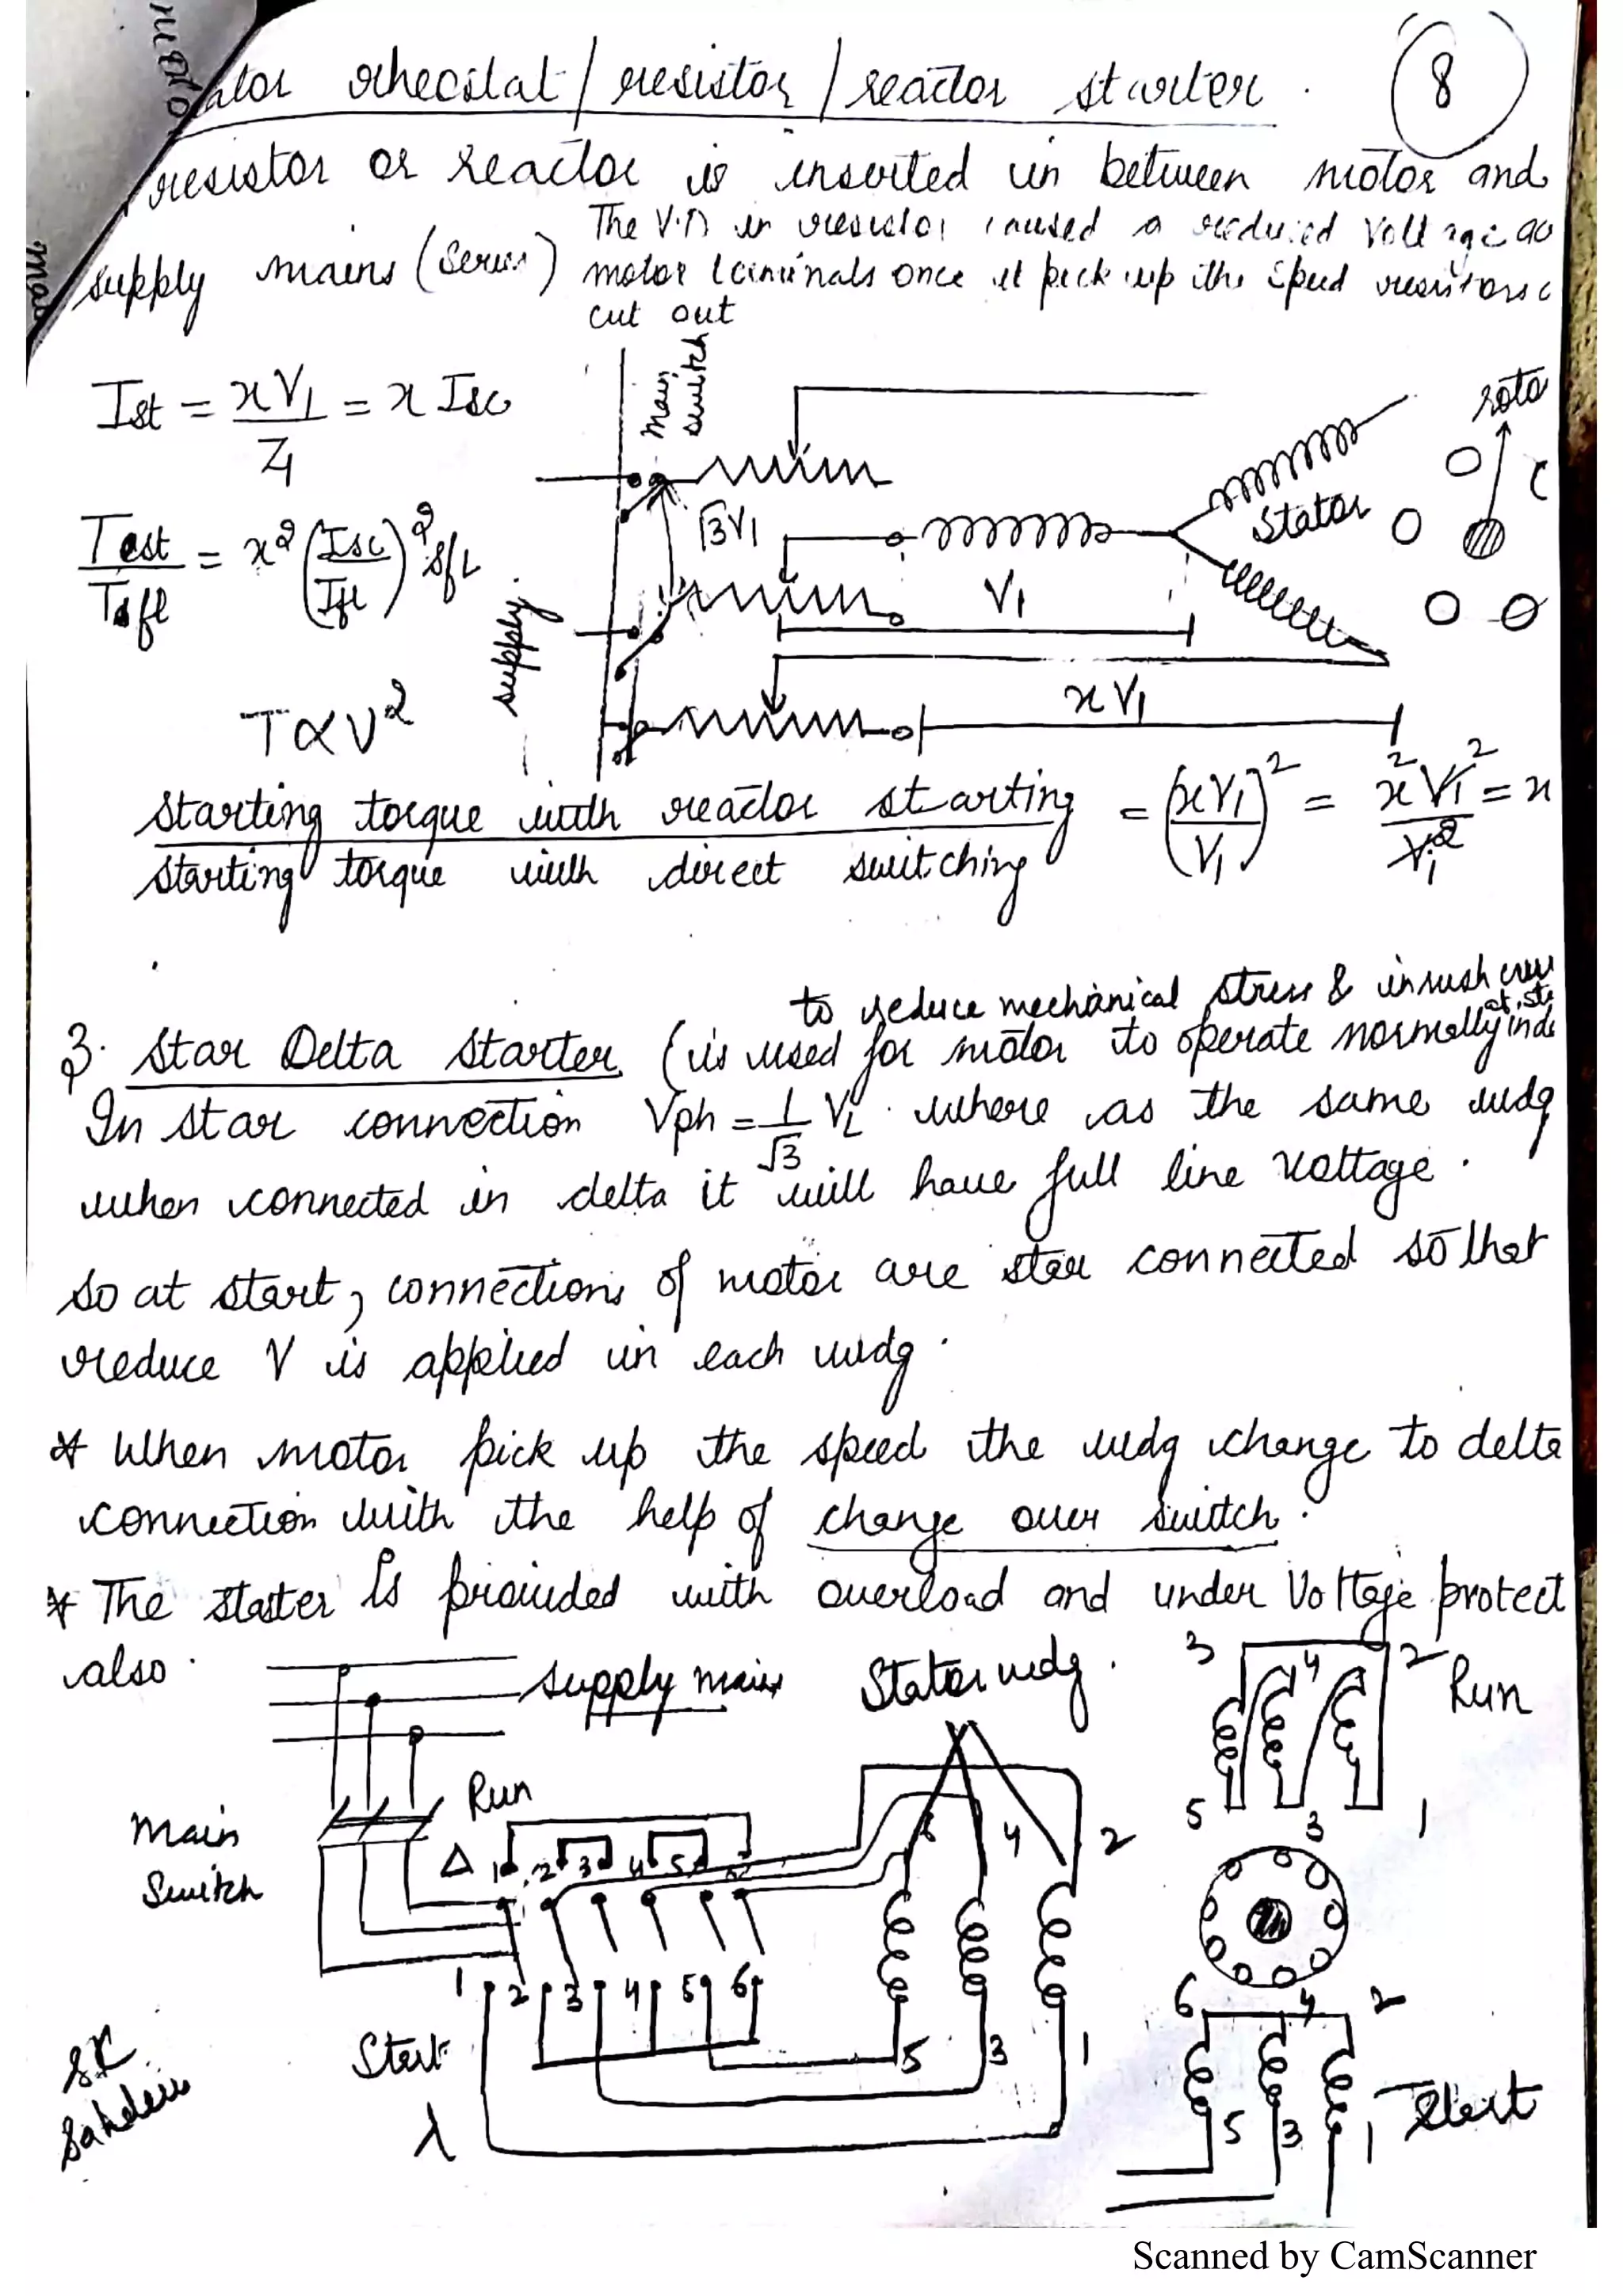 rheostat / resistor / reactor starter. 8
resistor or reactor is inserted in between motor and
supply mains (Series) The V.D in resistor caused a reduced Voltage ac
motor terminals once it pick up the speed resistors c
cut out
Ist = xV1 / Z1 = x Isc
Test / Tefl = x² (Isc / Ifl)² sfl
T ∝ V²
main switch
supply
√3V1
V1
xV1
Stator
roto
Starting torque with reactor starting / Starting torque with direct switching = (xV1 / V1)² = x²V1² / V1² = x
to reduce mechanical stress & inrush curr
at st
3. Star Delta Starter (is used for motor to operate normally in d
In star connection Vph = 1/√3 VL. where as the same wdg
when connected in delta it will have full line voltage.
so at start, connections of motor are star connected so that
reduce V is applied in each wdg.
* When motor pick up the speed the wdg change to delta
connection with the help of change over switch.
* The stater is provided with overload and under Voltage protect
also.
supply mains
Stator wdg.
3 4 2 Run
5 3 1
Main
Switch
Run
Δ 1 2 3 4 5 6
6 4 2
1 2 3 4 5 6
Start
λ
5 3 1
6 4 2
5 3 1 Start
SK
Scanned by CamScanner